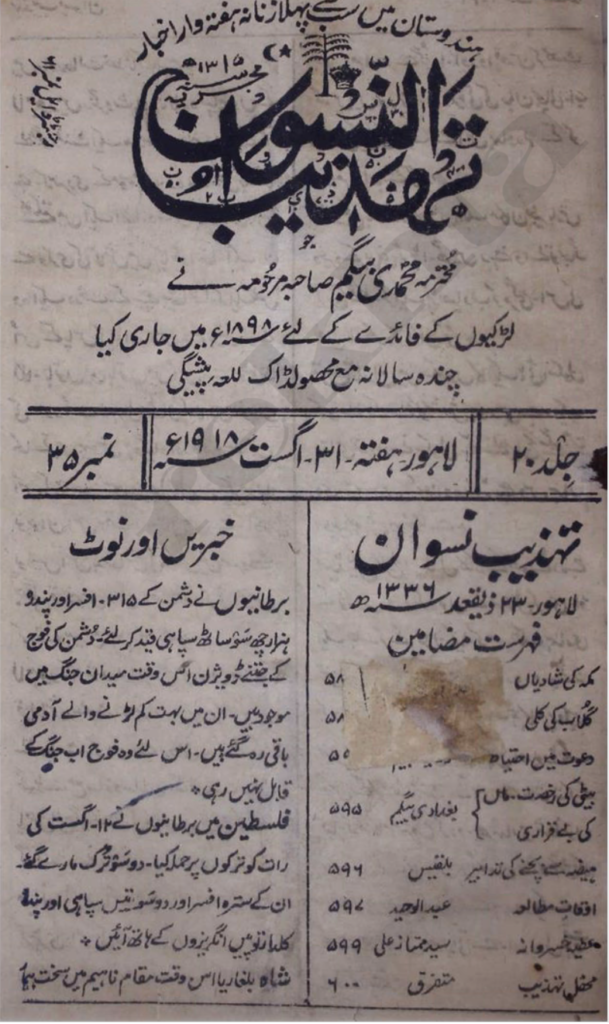 ہندوستان میں سب سے پہلا زنانہ ہفتہ وار اخبار
تہذیب النسواں
جو
محترمہ محمدی بیگم صاحبہ مرحومہ نے
لڑکیوں کے فائدے کے لئے ۱۸۹۸ء میں جاری کیا
چندہ سالانہ مع محصولڈاک للعہ پیشگی
جلد ۲۰
لاہور ہفتہ - ۳۱ - اگست ۱۹۱۸ء
نمبر ۳۵
تہذیب نسواں
لاہور - ۲۳ ذیقعد ۱۳۳۶ھ
فہرست مضامین
مکہ کی شادیاں ۵۸
گلاب کی کلی ۵۸
دعوت میں احتیاط
بیٹی کی رخصت - ماں کی بے قراری } بغدادی بیگم ۵۹۵
ہیضہ سے بچنے کی تدابیر بلقیس ۵۹۶
اوقات مطالعہ عبدالوحید ۵۹۷
عطیہ خسروانہ سید ممتاز علی ۵۹۹
محفل تہذیب متفرق ۶۰۰
خبریں اور نوٹ
برطانیوں نے دشمن کے ۳۱۵ - افسر اور پندرہ
ہزار چھ سو ساٹھ سپاہی قید کرلئے - دشمن کی فوج
کے جتنے ڈویژن اس وقت میدان جنگ میں
موجود ہیں - ان میں بہت کم لڑنے والے آدمی
باقی رہ گئے ہیں - اس لئے وہ فوج اب جنگ کے
قابل نہیں رہی *
فلسطین میں برطانیوں نے ۱۲ - اگست کی
رات کو ترکوں پر حملہ کیا - دو سو ترک مارے گئے -
ان کے سترہ افسر اور دو سو تیس سپاہی اور پندرہ
کلدار توپیں انگریزوں کے ہاتھ آئیں *
شاہ بلغاریا اس وقت مقام ناہیم میں سخت بیمار